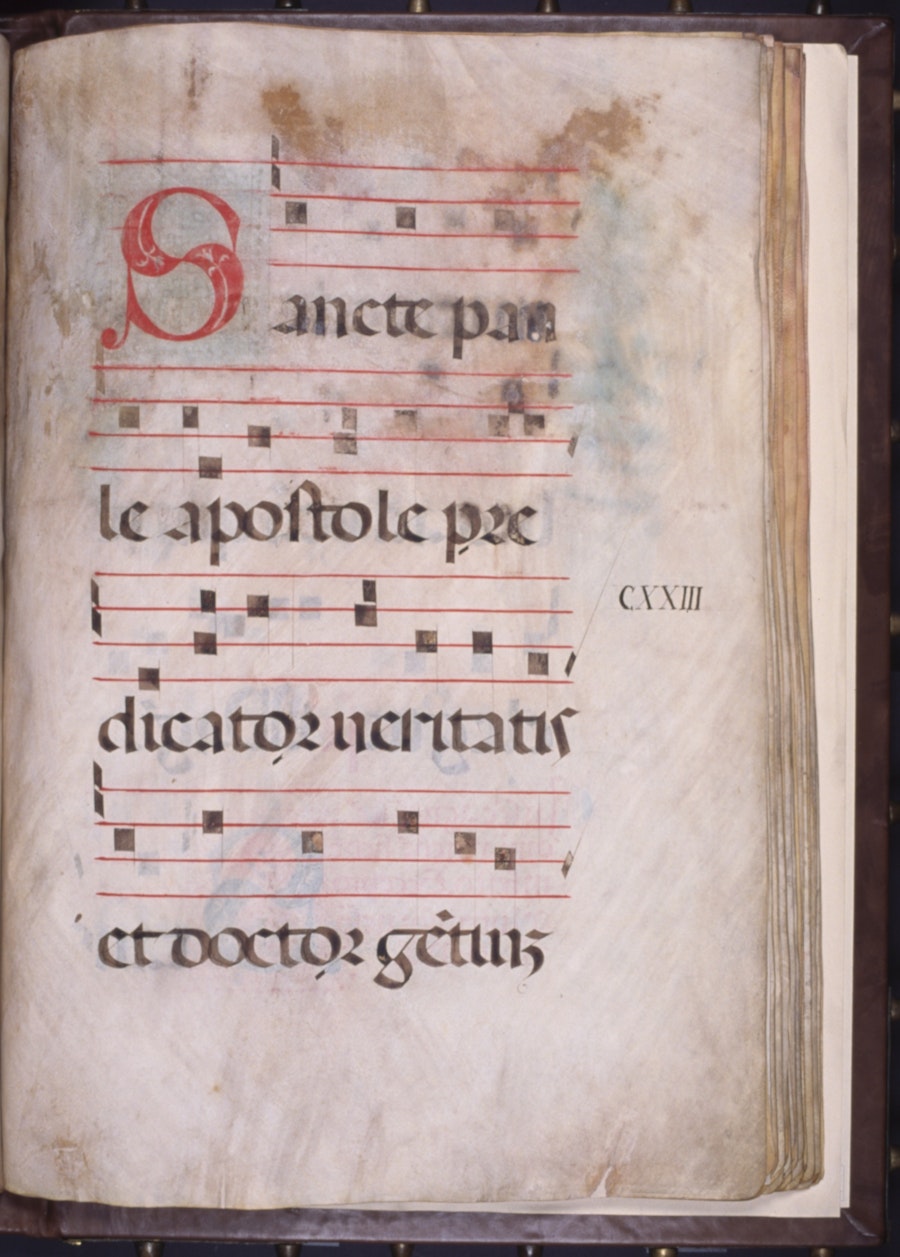 Sancte pau
le apostole pre
CXXIII
dicator ueritatis
et doctor gẽtiuꝫ